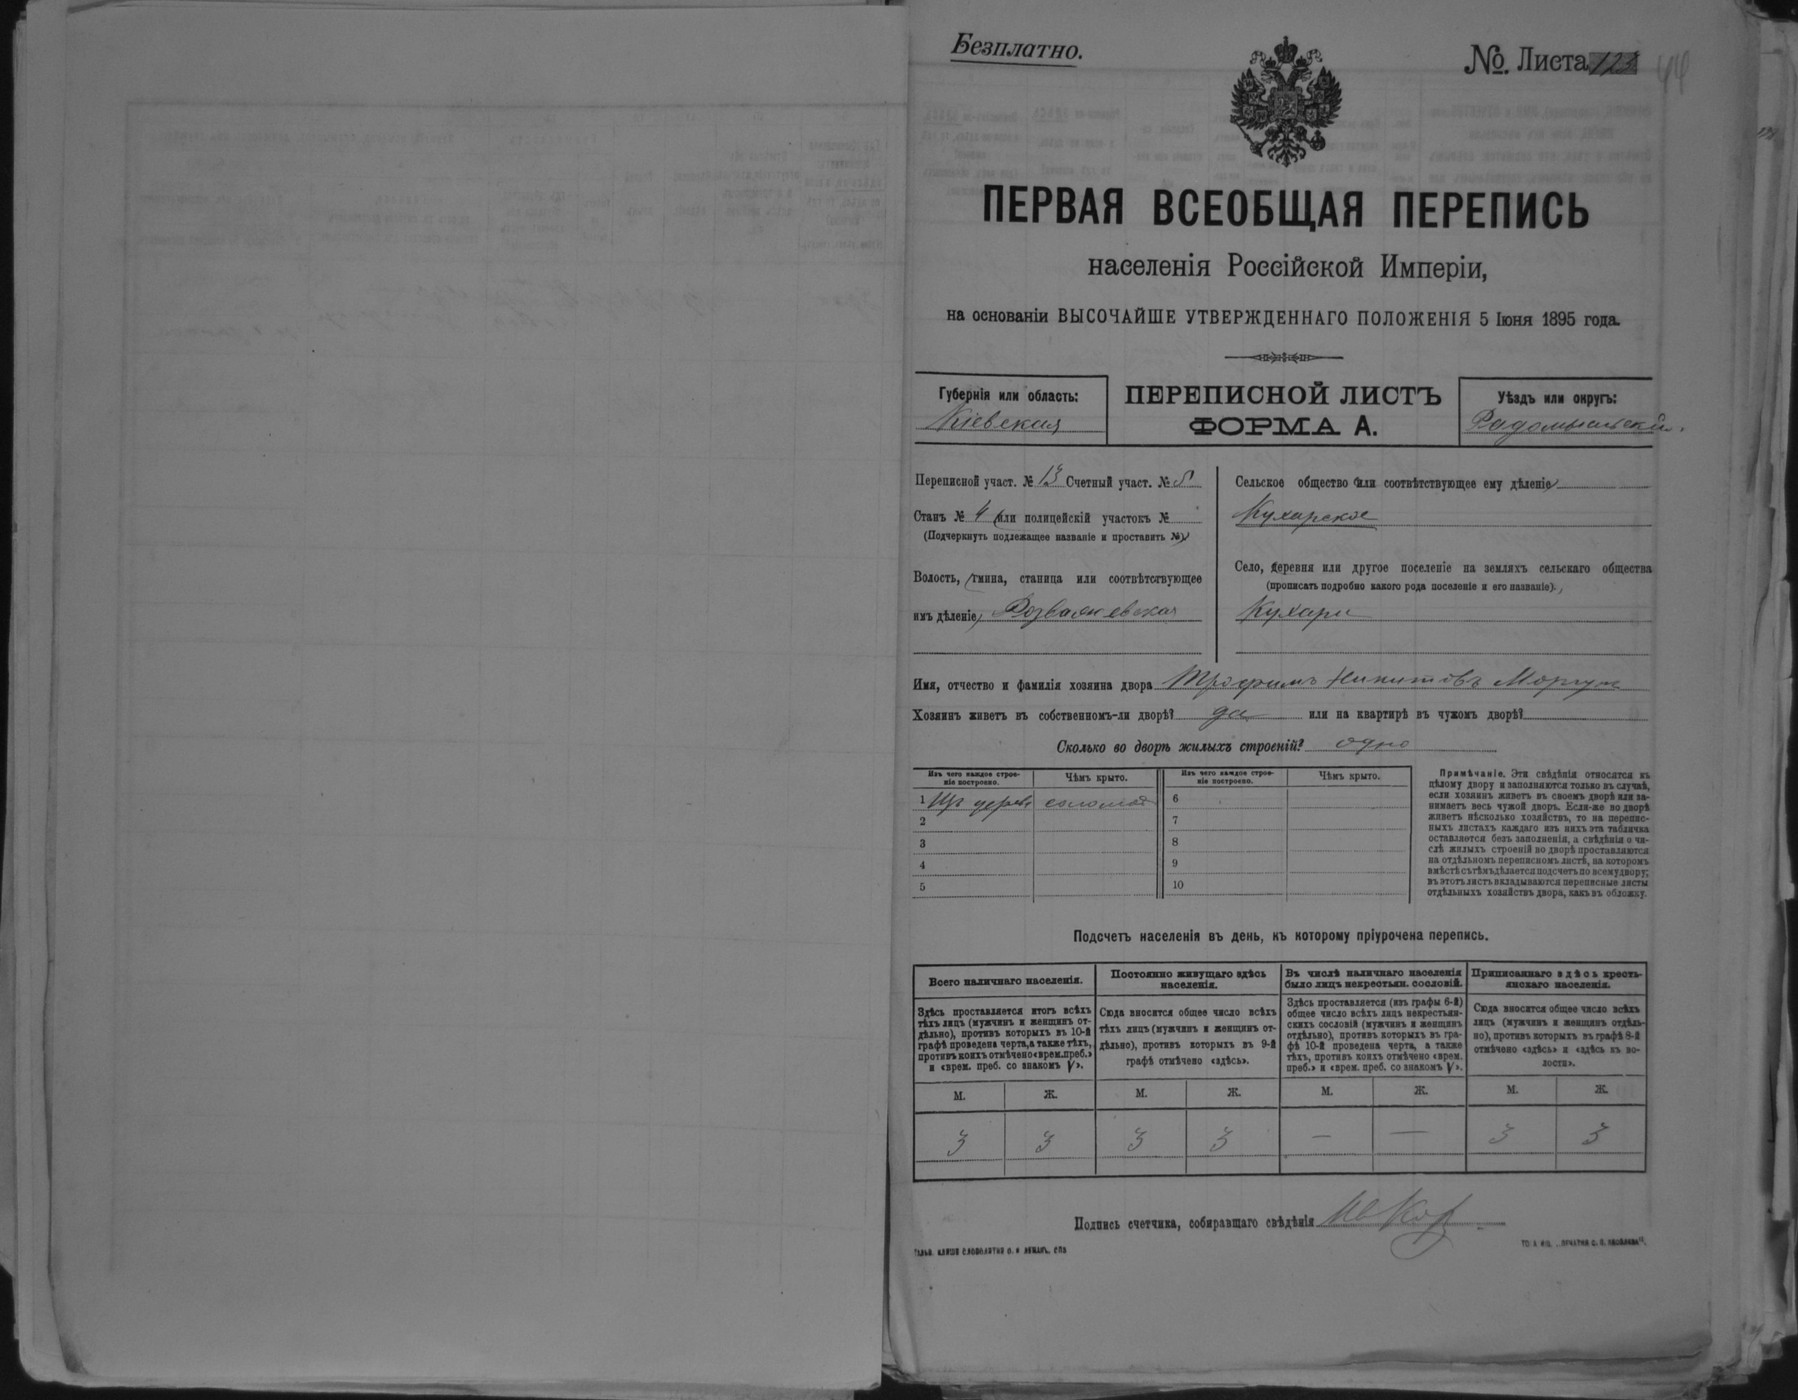 Безплатно.
№. Листа 123 44
ПЕРВАЯ ВСЕОБЩАЯ ПЕРЕПИСЬ
населенія Россійской Имперіи,
на основаніи ВЫСОЧАЙШЕ УТВЕРЖДЕННАГО ПОЛОЖЕНІЯ 5 Іюня 1895 года.
Губернія или область:
Кіевская
ПЕРЕПИСНОЙ ЛИСТЪ
ФОРМА А.
Уѣздъ или округъ:
Радомысльскій.
Переписной участ. № 13 Счетный участ. № 5
Станъ № 4 (или полицейскій участокъ №
(Подчеркнуть подлежащее названіе и проставить №)
Волость, (гмина, станица или соотвѣтствующее
имъ дѣленіе) Розважевская
Сельское общество (или соотвѣтствующее ему дѣленіе)
Кухарское
Село, деревня или другое поселеніе на земляхъ сельскаго общества
(прописать подробно какого рода поселеніе и его названіе).
Кухари
Имя, отчество и фамилія хозяина двора Трофимъ Никитовъ Моргун
Хозяинъ живетъ въ собственномъ-ли дворѣ? да или на квартирѣ въ чужомъ дворѣ?
Сколько во дворѣ жилыхъ строеній? одно
Изъ чего каждое строе-
ніе построено.
Чѣмъ крыто.
Изъ чего каждое строе-
ніе построено.
Чѣмъ крыто.
1 Из дерева соломой 6
2 7
3 8
4 9
5 10
Примѣчаніе. Эти свѣдѣнія относятся къ
цѣлому двору и заполняются только въ случаѣ,
если хозяинъ живетъ въ своемъ дворѣ или за-
нимаетъ весь чужой дворъ. Если-же во дворѣ
живетъ нѣсколько хозяйствъ, то на перепис-
ныхъ листахъ каждаго изъ нихъ эта табличка
оставляется безъ заполненія, а свѣдѣнія о чи-
слѣ жилыхъ строеній во дворѣ проставляются
на отдѣльномъ переписномъ листѣ, на которомъ
вмѣстѣ съ тѣмъ дѣлается подсчетъ по всему двору;
въ этотъ листъ вкладываются переписные листы
отдѣльныхъ хозяйствъ двора, какъ въ обложку.
Подсчетъ населенія въ день, къ которому пріурочена перепись.
Всего наличнаго населенія.
Здѣсь проставляется итогъ всѣхъ
тѣхъ лицъ (мужчинъ и женщинъ от-
дѣльно), противъ которыхъ въ 10-й
графѣ проведена черта, а также тѣхъ,
противъ коихъ отмѣчено «врем. преб.»
и «врем. преб. со знакомъ V».
Постоянно живущаго здѣсь
населенія.
Сюда вносится общее число всѣхъ
тѣхъ лицъ (мужчинъ и женщинъ от-
дѣльно), противъ которыхъ въ 9-й
графѣ отмѣчено «здѣсь».
Въ числѣ наличнаго населенія
было лицъ некрестьян. сословій.
Здѣсь проставляется (изъ графы 6-й)
общее число всѣхъ лицъ некрестьян-
скихъ сословій (мужчинъ и женщинъ
отдѣльно), противъ которыхъ въ гра-
фѣ 10-й проведена черта, а также
тѣхъ, противъ коихъ отмѣчено «врем.
преб.» и «врем. преб. со знакомъ V».
Приписаннаго здѣсь кресть-
янскаго населенія.
Сюда вносится общее число всѣхъ
лицъ (мужчинъ и женщинъ отдѣль-
но), противъ которыхъ въ графѣ 8-й
отмѣчено «здѣсь» и «здѣсь къ во-
лости».
М. Ж. М. Ж. М. Ж. М. Ж.
3 3 3 3 — — 3 3
Подпись счетчика, собиравшаго свѣдѣнія